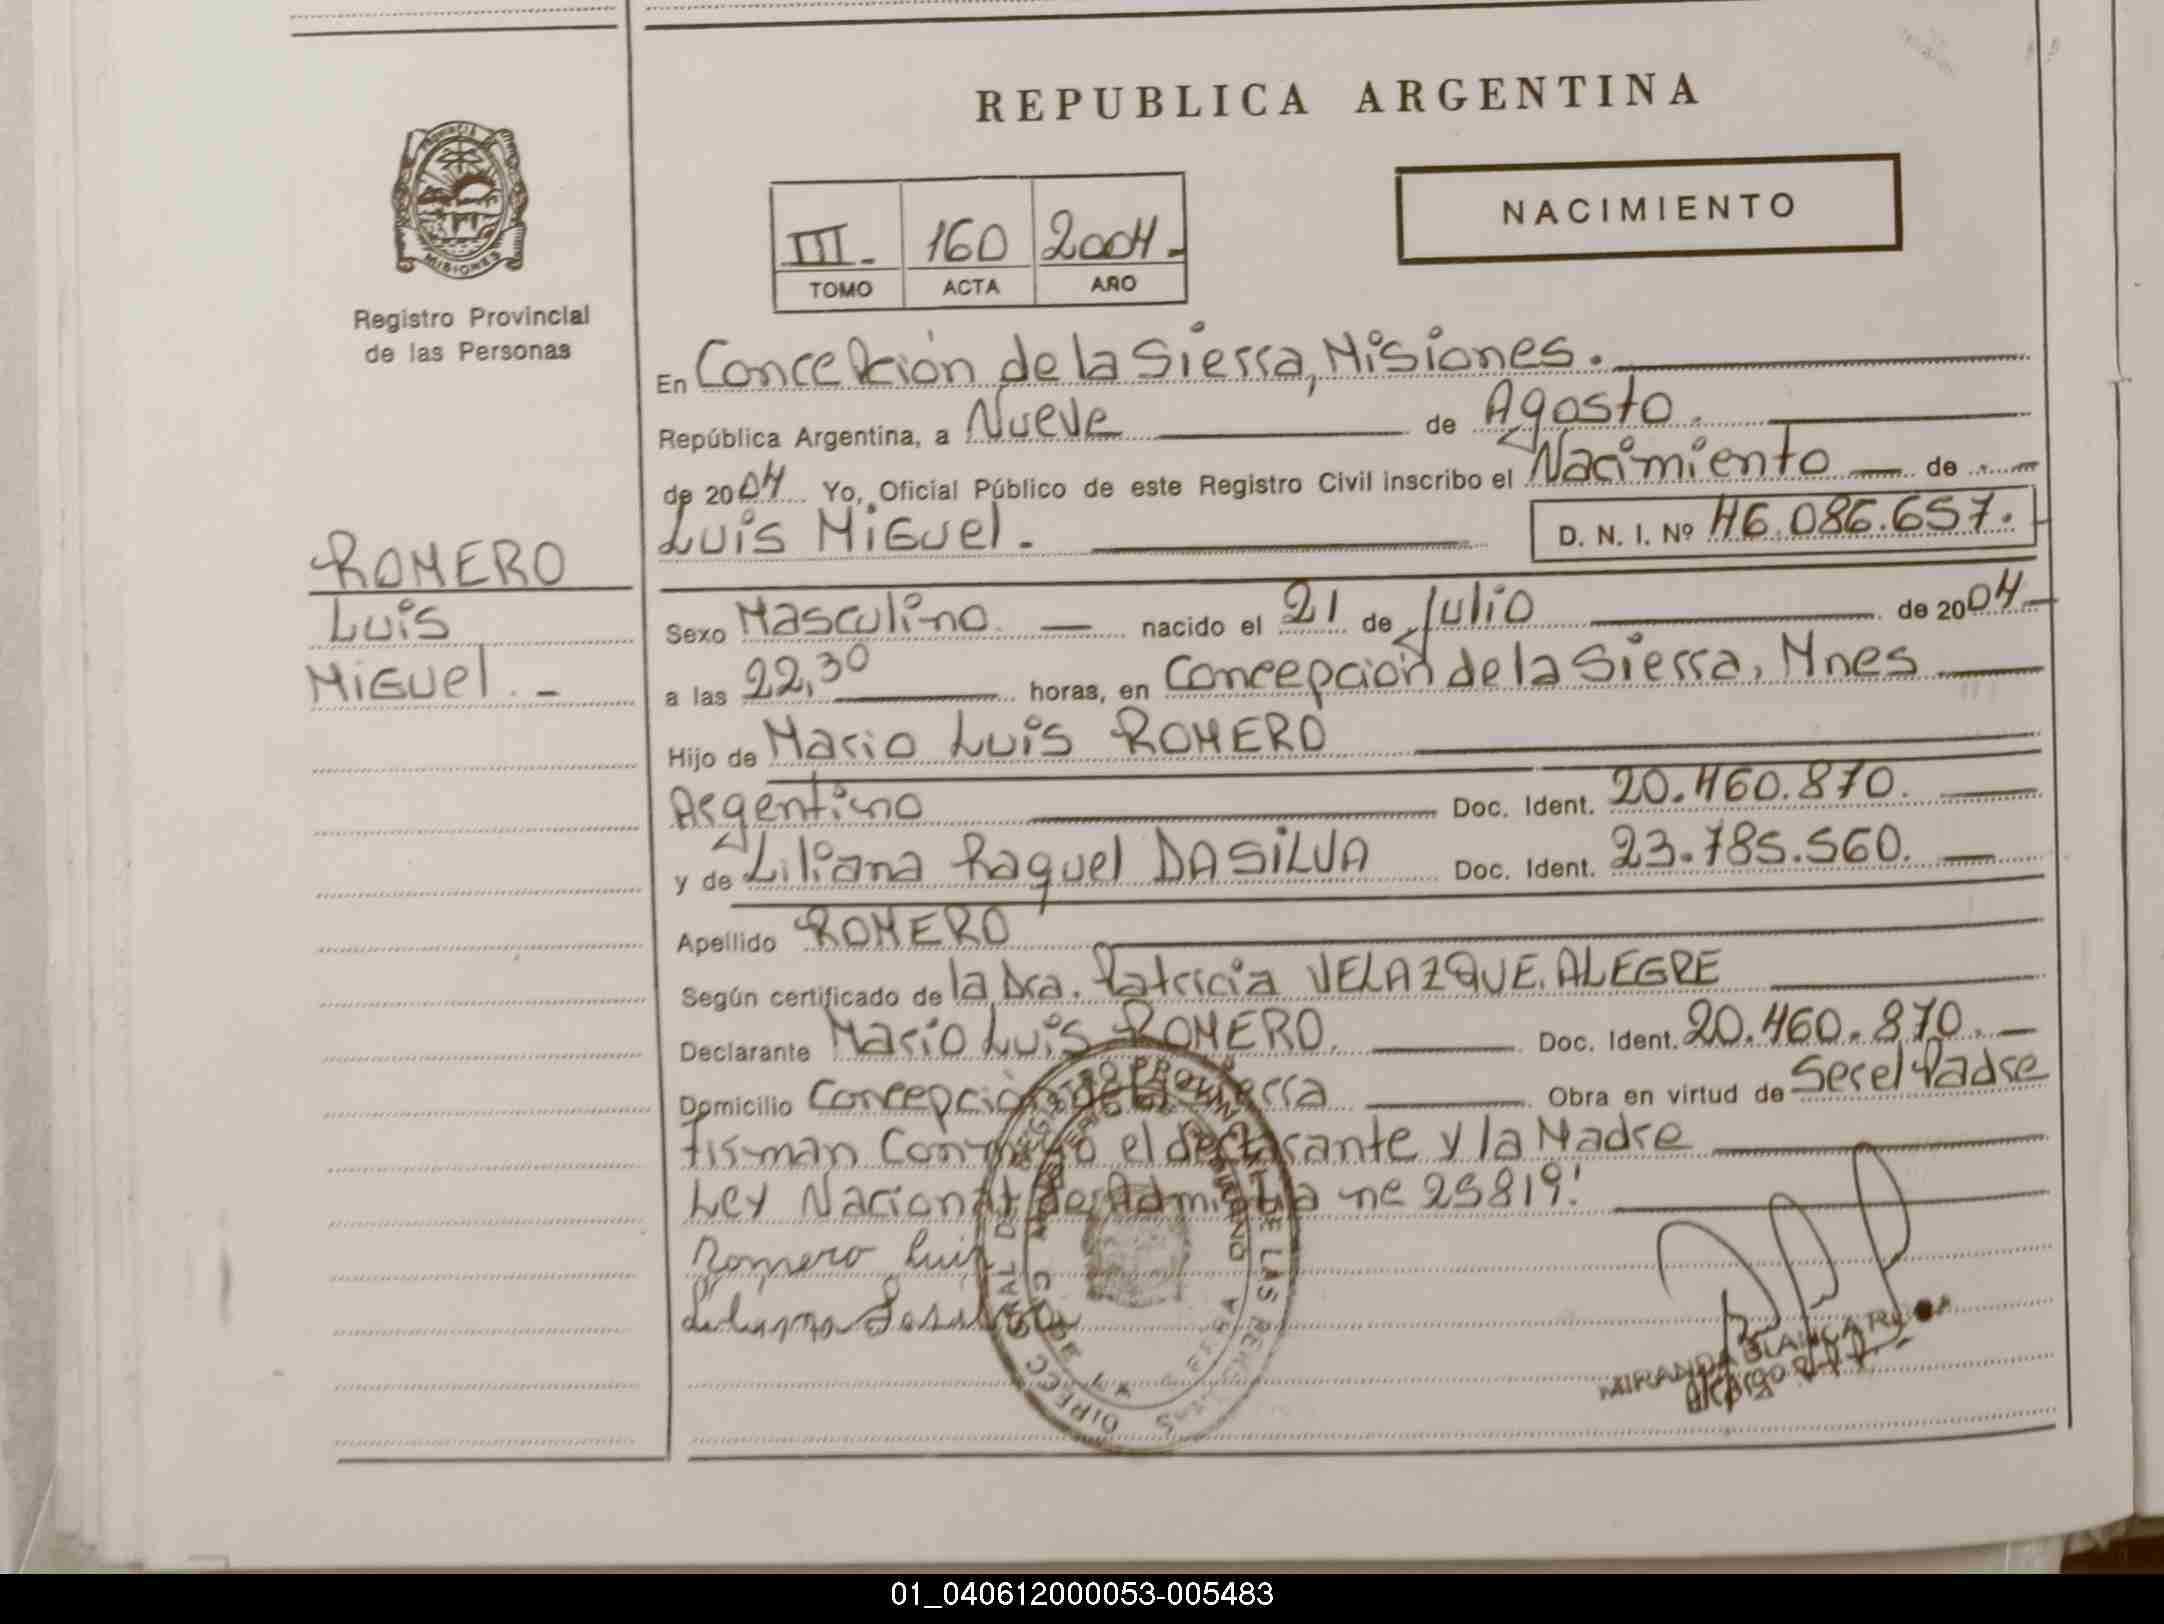 REPUBLICA ARGENTINA
NACIMIENTO
III. 160 2004.
TOMO ACTA AÑO
MISIONES
Registro Provincial
de las Personas
ROMERO
Luis
Miguel. -
En Concepción de la Sierra, Misiones.
República Argentina, a Nueve de Agosto.
de 2004 Yo, Oficial Público de este Registro Civil inscribo el Nacimiento de
Luis Miguel. D. N. I. Nº 46.086.657.
Sexo Masculino nacido el 21 de Julio de 2004
a las 22,30 horas, en Concepción de la Sierra, Mnes
Hijo de Mario Luis ROMERO
Argentino Doc. Ident. 20.460.870.
y de Liliana Raquel DA SILVA Doc. Ident. 23.785.560.
Apellido ROMERO
Según certificado de la Dra. Patricia VELAZQUE. ALEGRE
Declarante Mario Luis ROMERO. Doc. Ident. 20.460.870.
Domicilio Concepción de la Sierra Obra en virtud de Ser el Padre
firman Conmigo el declarante y la Madre
Ley Nacional de 25819.
Romero Luis
MIRANDA BLANCA ROSA
a cargo
01_040612000053-005483